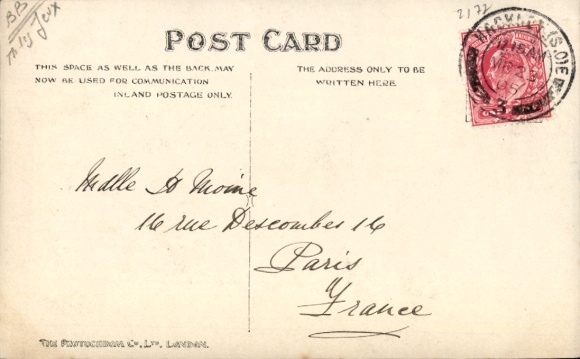 BB
2/72
POST CARD
THIS SPACE AS WELL AS THE BACK, MAY
NOW BE USED FOR COMMUNICATION
INLAND POSTAGE ONLY.
THE ADDRESS ONLY TO BE
WRITTEN HERE
HACKNEY (S.O) E
3
Mdlle H Moine
16 rue Descombes 16
Paris
France
THE PHOTOCHROM CO., LTD., LONDON.